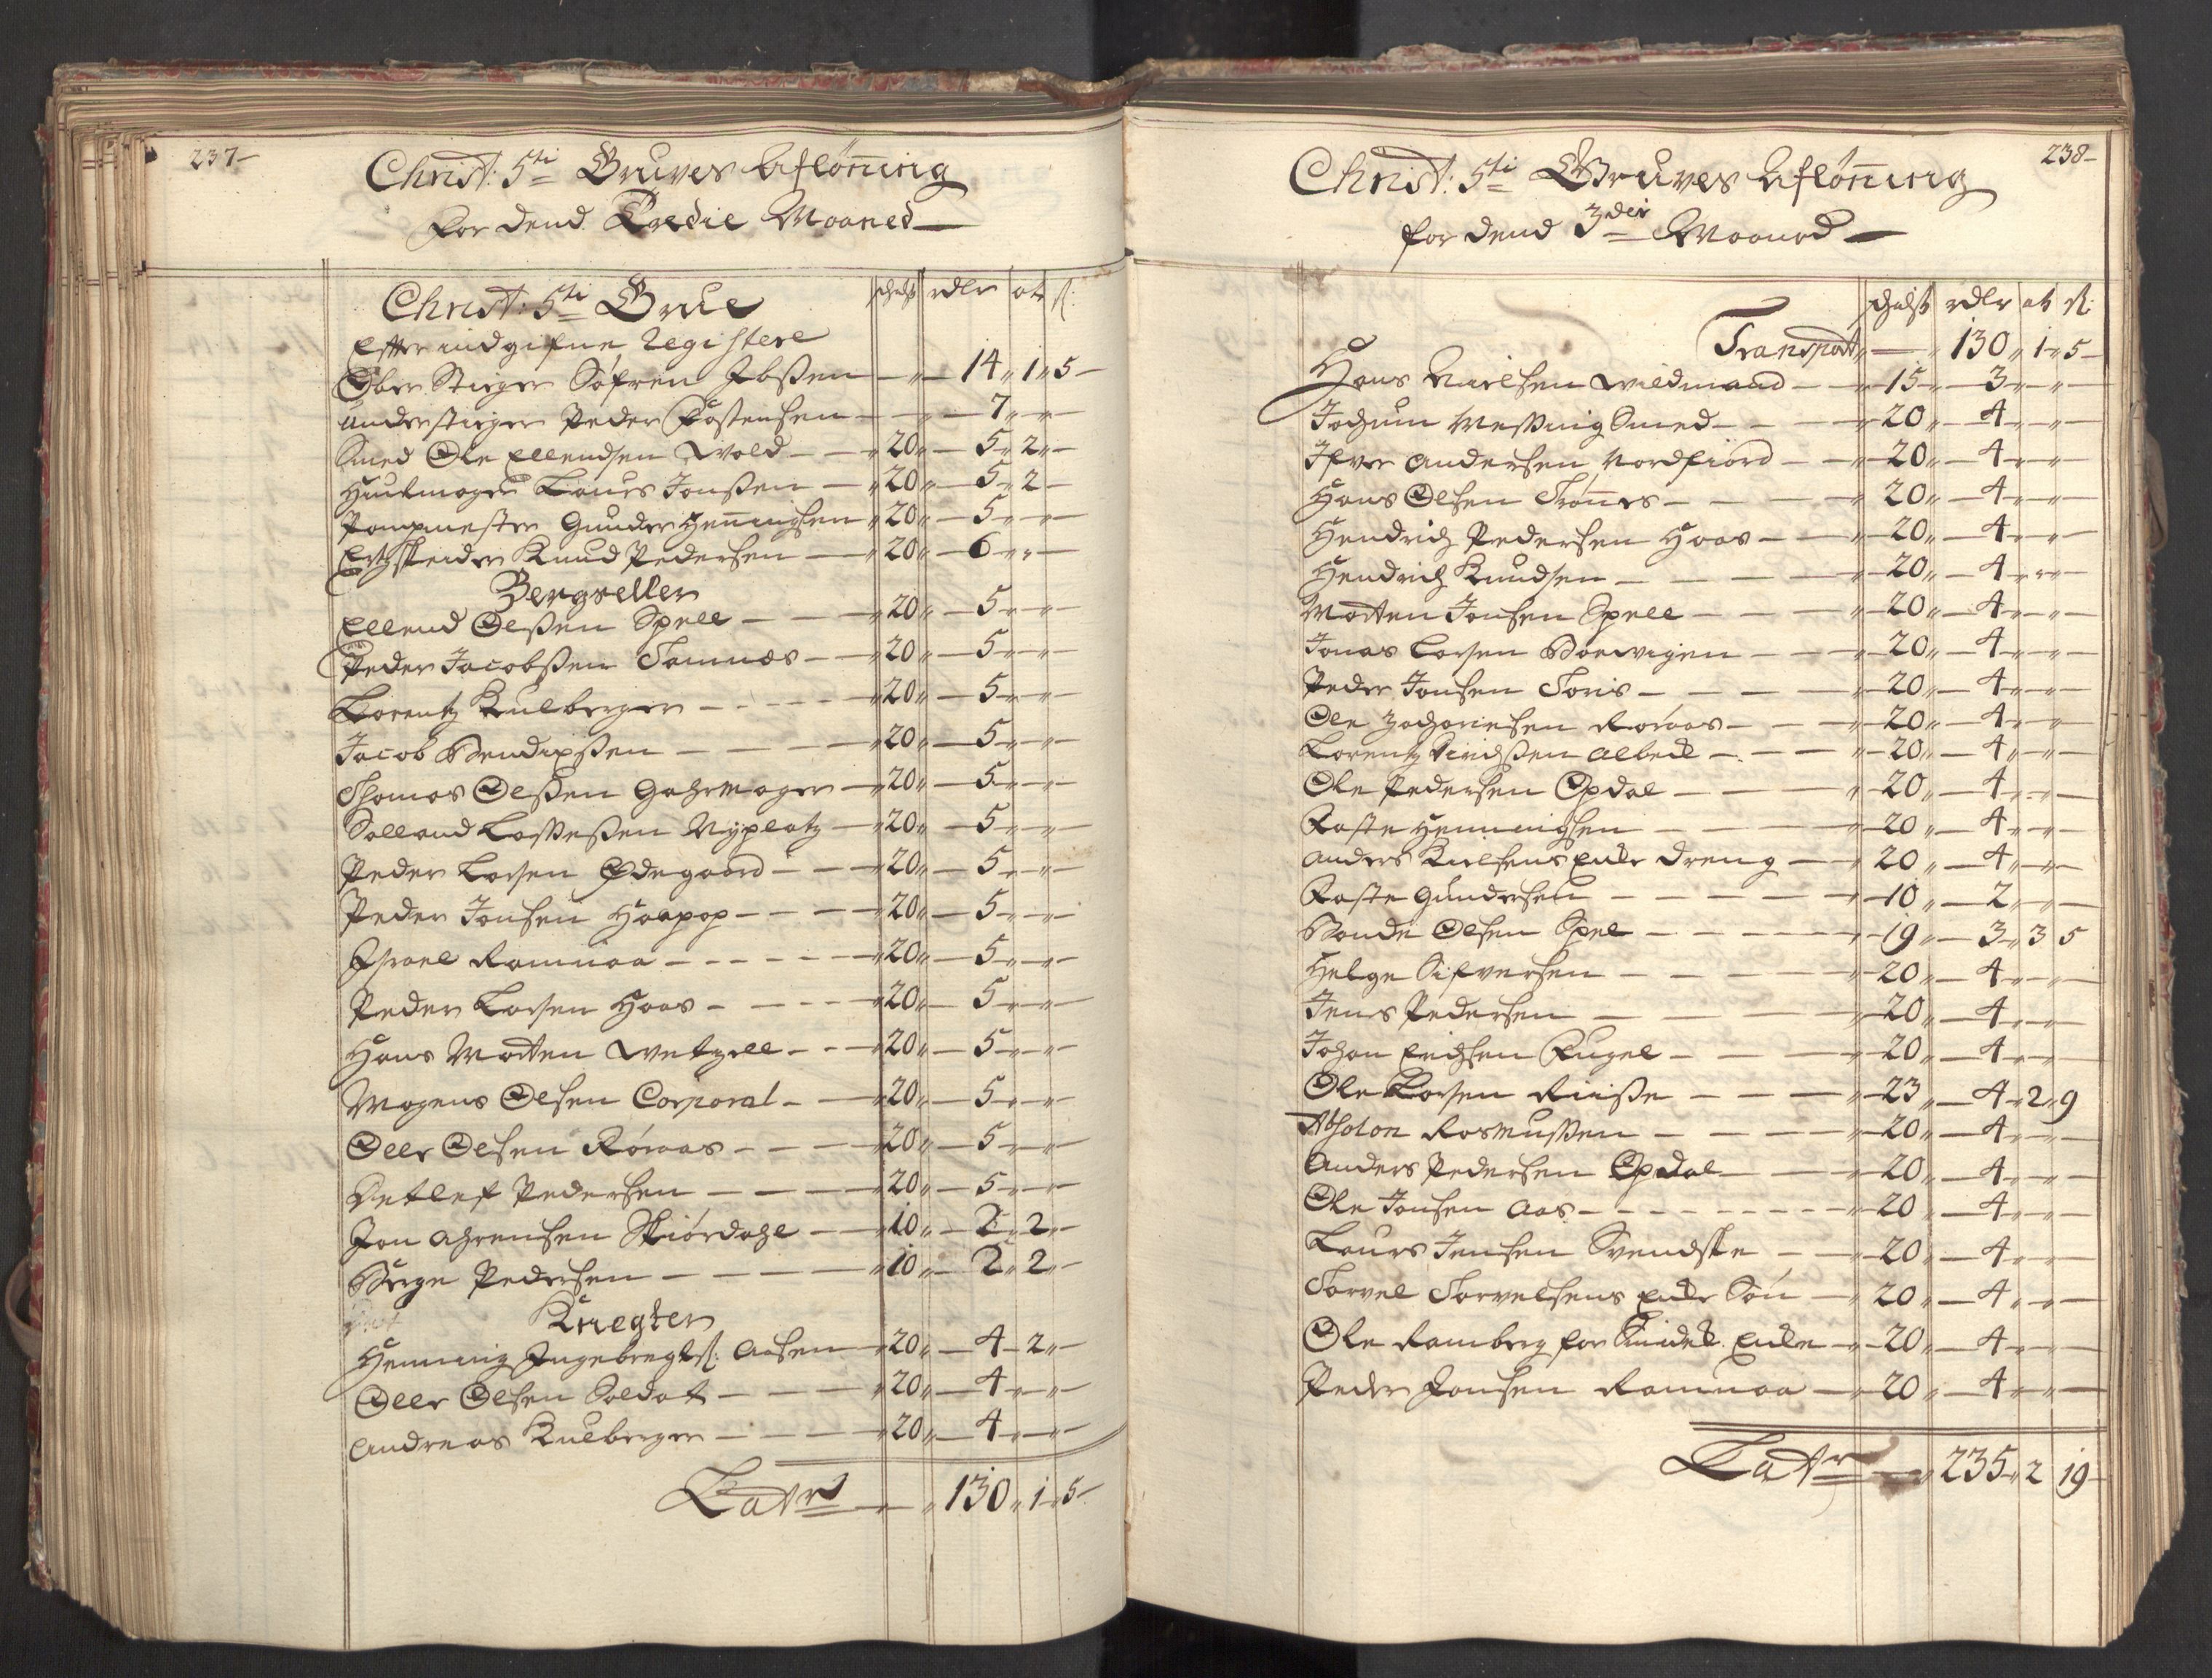 237-
Christ: 5ti Gruves Aflönning
For dend Tredie Maaned
Christ: 5ti Grue
schicht rdlr ort ß:
Efter indgifne Registere
Ober Stiger Söfren Ibßen 14 1 5
Understiger Peder Tostensen 7
Smed Ole Ellendsen Wold 20 5 2
Hiulmager Laurs Jonßen 20 5 2
Pompmester Gunder Henningsen 20 5
Ertzskeider Knud Pedersen 20 6
Bergseller
Ellend Olßen Spell 20 5
Peder Jacobßen Tamnes 20 5
Lorentz Kulberger 20 5
Jacob Bendixßen 20 5
Thomas Olßen Gahrmager 20 5
Salland Laßeßen Nyplatz 20 5
Peder Larsen Ödegaard 20 5
Peder Jonsen Haapop 20 5
Israel Ramnaa 20 5
Peder Larsen Haas 20 5
Hans Morten Wetzell 20 5
Mogens Olsen Corporal 20 5
Oller Olsen Röraas 20 5
Detlef Pedersen 20 5
Jon Ahrensen Skiördahl 10 2 2
Børge Pedersen 10 2 2
Knegter
Henning Ingebregtß: Aasen 20 4 2
Oller Olsen Soldat 20 4
Andreas Kulberger 20 4
Latus 130 1 5
238-
Christ: 5ti Gruves Aflönning
for dend 3die Maaned
schicht rdlr ort ß:
Transport 130 1 5
Hans Nielsen Wildmand 15 3
Jochum Meßing Smed 20 4
Ifver Andersen Nordfiord 20 4
Hans Olsen Trönes 20 4
Hendrich Pedersen Haas 20 4
Hendrich Knudsen 20 4
Morten Jonsen Spell 20 4
Jonas Larsen Borwigen 20 4
Peder Jonsen Toris 20 4
Ole Zachariesen Röraas 20 4
Lorentz Albede 20 4
Ole Pedersen Opdal 20 4
Faste Henningsen 20 4
Anders Kielsens Enke Dreng 20 4
Faste Gundersen 10 2
Bonde Olsen Spel 19 3 3 5
Helge Sifversen 20 4
Jens Pedersen 20 4
Johan Erichsen Kugel 20 4
Ole Larsen Riiße 23 4 2 9
Absolon Rasmußen 20 4
Anders Pedersen Opdal 20 4
Ole Jonsen Aas 20 4
Laurs Jensen Svendske 20 4
Torvel Torvelsens Enke Sön 20 4
Ole Ramberg for Enke 20 4
Peder Jonsen Ramnaa 20 4
Latus 235 2 19